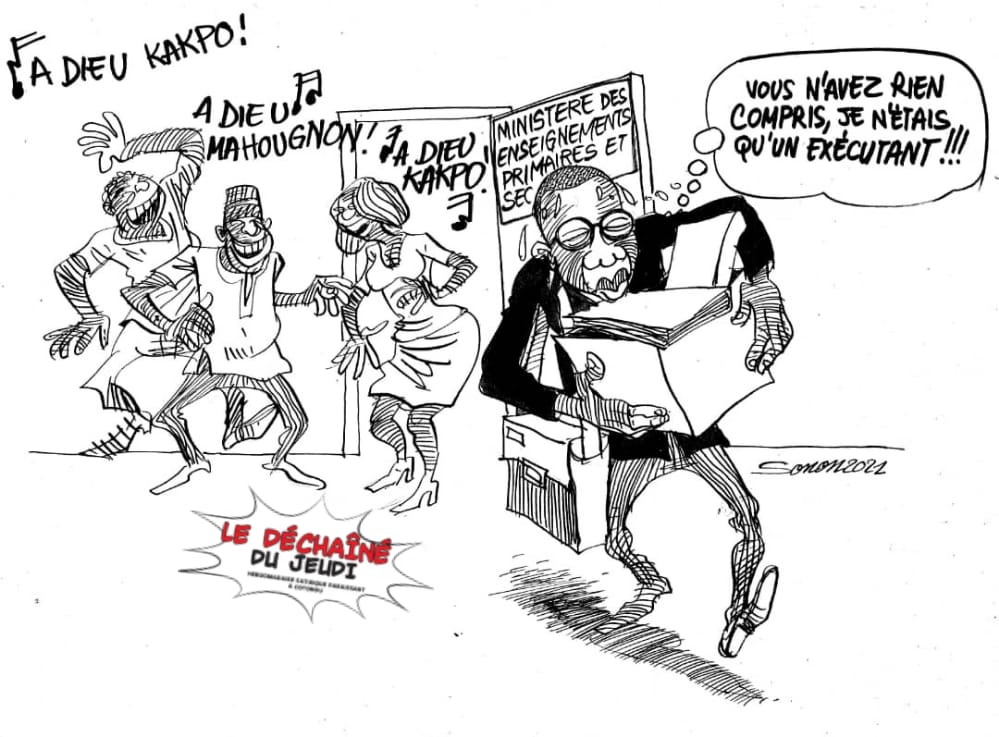 A DIEU KAKPO!
A DIEU
MAHOUGNON!
A DIEU
KAKPO!
MINISTERE DES
ENSEIGNEMENTS
PRIMAIRES ET
SEC
VOUS N'AVEZ RIEN
COMPRIS, JE N'ÉTAIS
QU'UN EXÉCUTANT!!!
Sonon 2021
LE DÉCHAÎNÉ
DU JEUDI
HEBDOMADAIRE SATIRIQUE PARAISSANT
A COTONOU